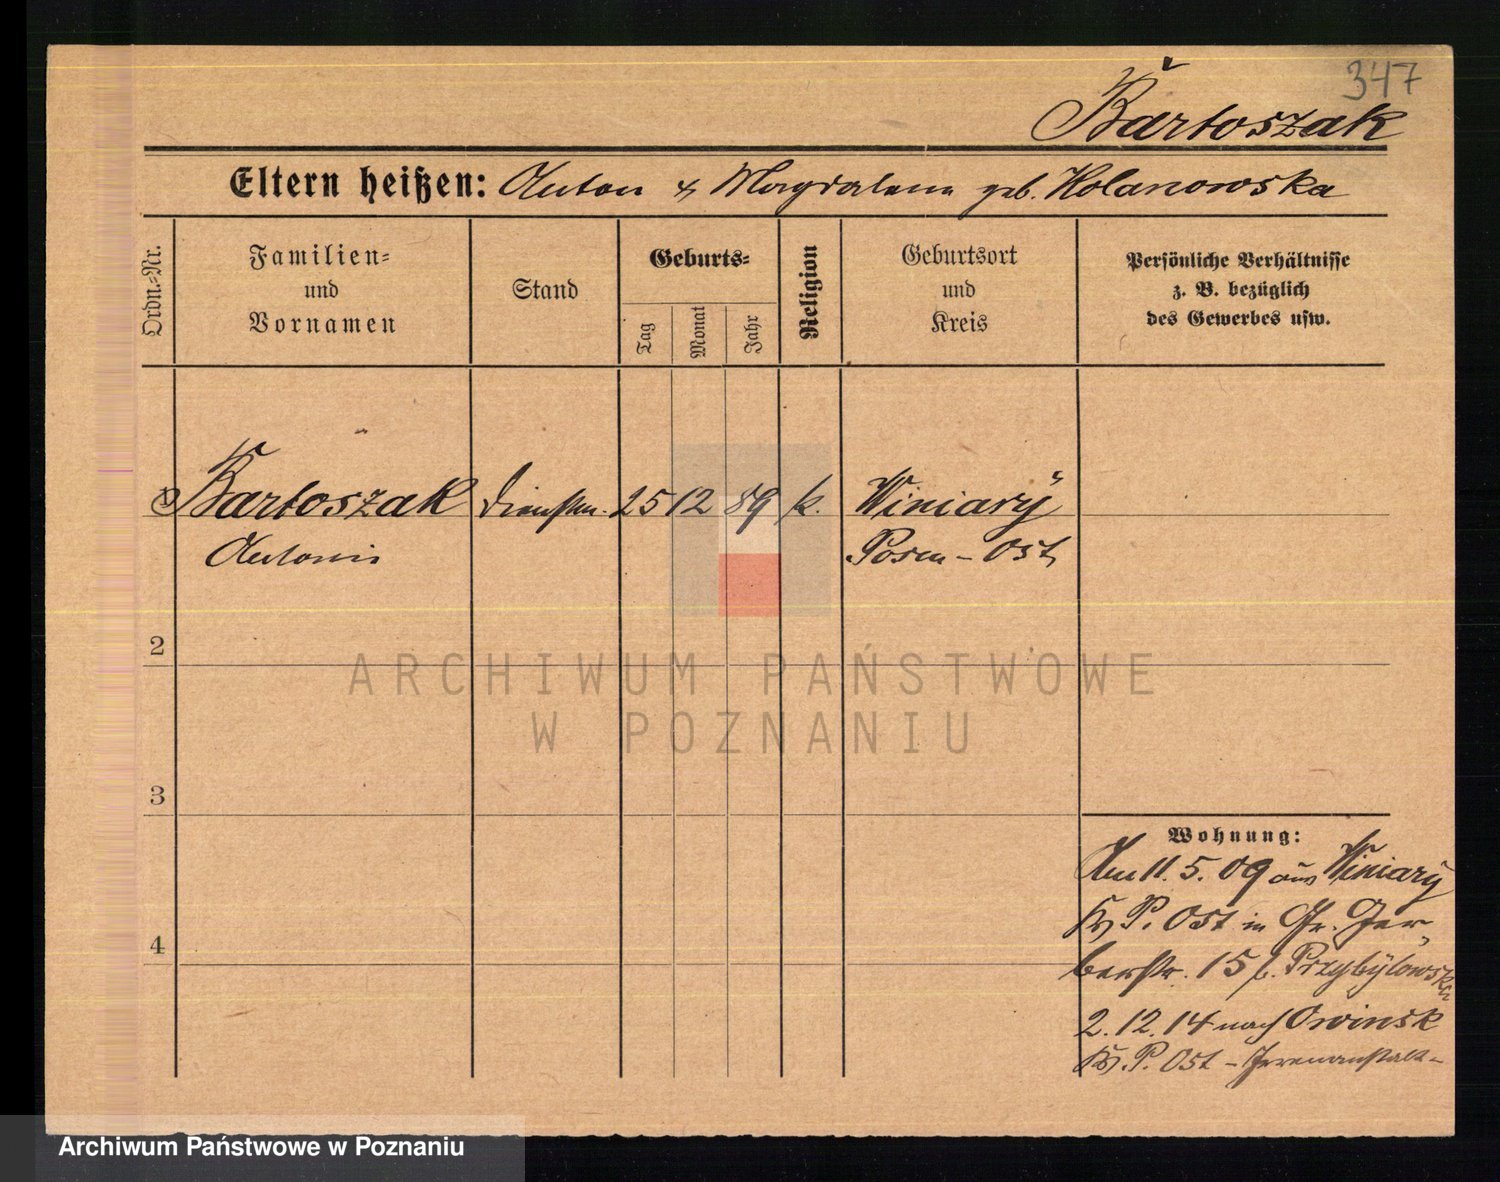 347
Bartoszak
Eltern heißen: Anton & Magdalena geb. Holanowska
Ordn.-Nr.
Familien-
und
Vornamen
Stand
Geburts-
Tag
Monat
Jahr
Religion
Geburtsort
und
Kreis
Persönliche Verhältnisse
z. B. bezüglich
des Gewerbes usw.
Bartoszak Dienstm. 25 12 89 k. Winiary
Antonie Posen - Ost
2
3
4
Wohnung:
Am 11. 5. 09 aus Winiary
Kr. P. Ost in Gr. Ger-
berstr. 15 b. Przybylowska
2. 12. 14 nach Owinsk
Kr. P. Ost - Irrenanstalt -
ARCHIWUM PAŃSTWOWE
W POZNANIU
Archiwum Państwowe w Poznaniu